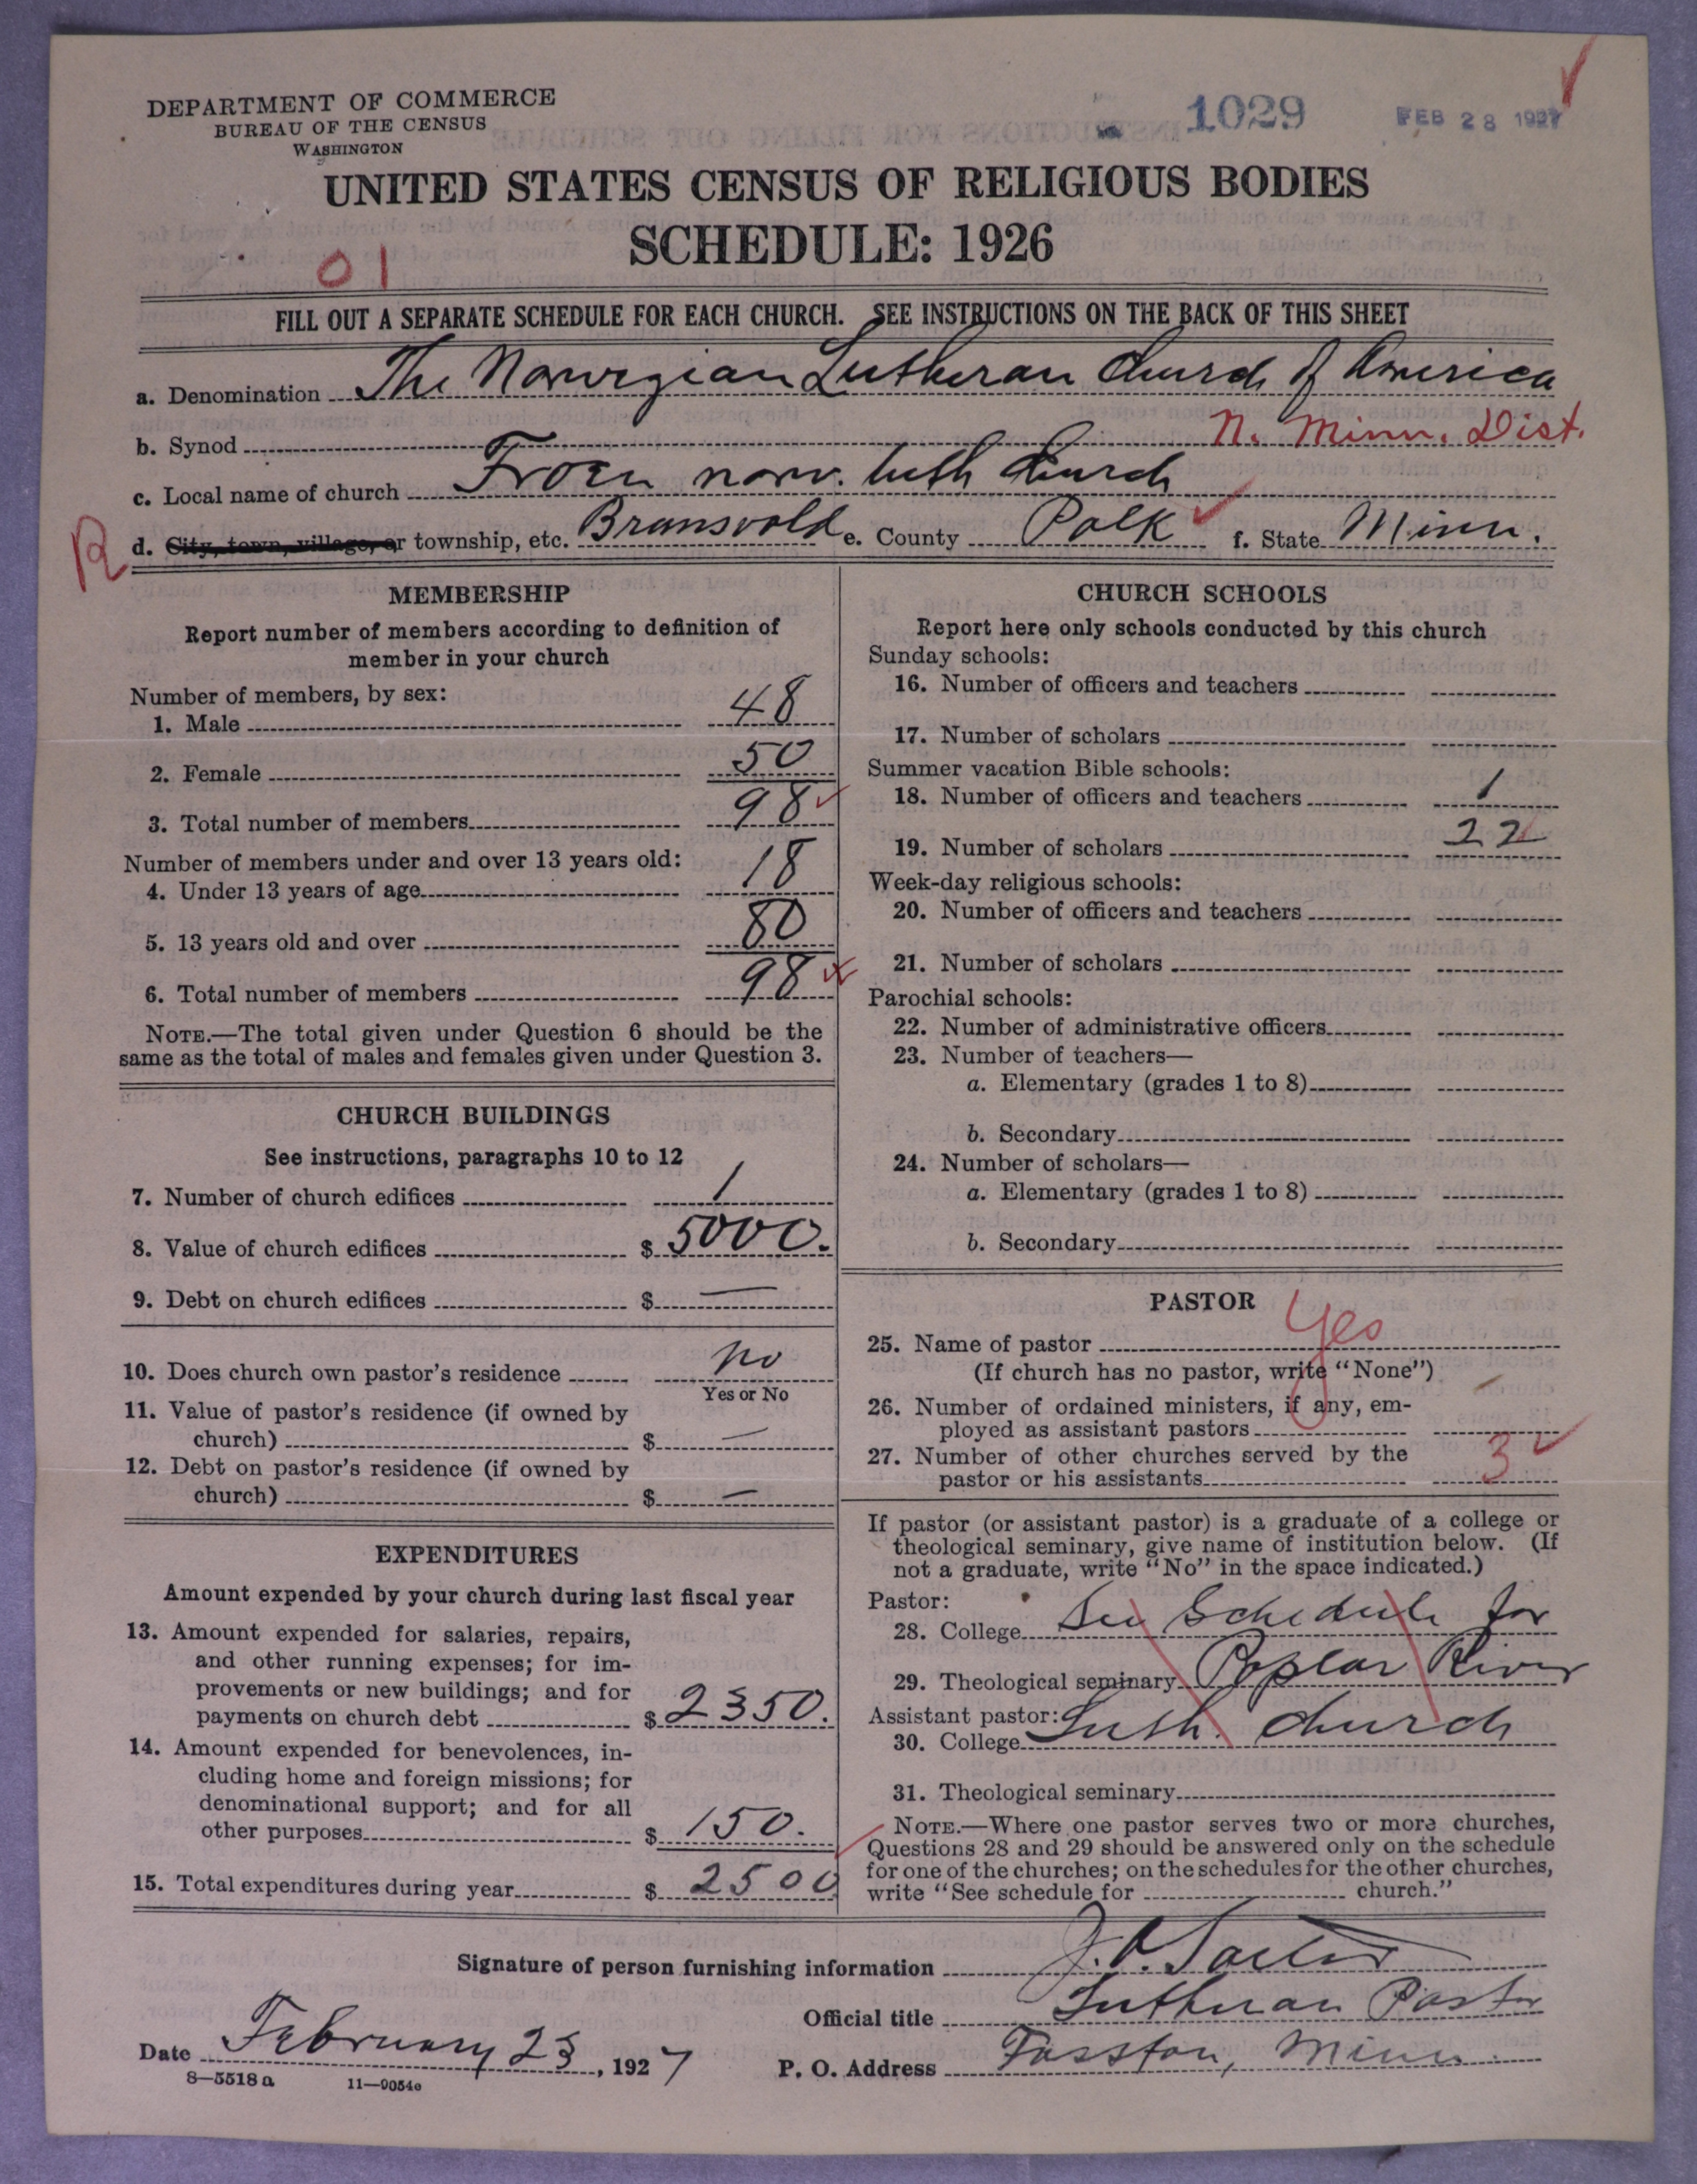 DEPARTMENT OF COMMERCE
BUREAU OF THE CENSUS
WASHINGTON
1029
FEB 28 1927
UNITED STATES CENSUS OF RELIGIOUS BODIES
SCHEDULE: 1926
01
FILL OUT A SEPARATE SCHEDULE FOR EACH CHURCH. SEE INSTRUCTIONS ON THE BACK OF THIS SHEET
a. Denomination The Norwegian Lutheran Church of America
b. Synod N. Minn. Dist.
c. Local name of church Froen norw. luth Church
R d. City, town, village, or township, etc. Bransvold e. County Polk f. State Minn.
MEMBERSHIP
Report number of members according to definition of
member in your church
Number of members, by sex:
1. Male 48
2. Female 50
3. Total number of members 98
Number of members under and over 13 years old:
4. Under 13 years of age 18
5. 13 years old and over 80
6. Total number of members 98
NOTE.—The total given under Question 6 should be the
same as the total of males and females given under Question 3.
CHURCH BUILDINGS
See instructions, paragraphs 10 to 12
7. Number of church edifices 1
8. Value of church edifices $ 5000.
9. Debt on church edifices $ —
10. Does church own pastor's residence no
Yes or No
11. Value of pastor's residence (if owned by
church) $ —
12. Debt on pastor's residence (if owned by
church) $ —
EXPENDITURES
Amount expended by your church during last fiscal year
13. Amount expended for salaries, repairs,
and other running expenses; for im-
provements or new buildings; and for
payments on church debt $ 2350.
14. Amount expended for benevolences, in-
cluding home and foreign missions; for
denominational support; and for all
other purposes $ 150.
15. Total expenditures during year $ 2500
CHURCH SCHOOLS
Report here only schools conducted by this church
Sunday schools:
16. Number of officers and teachers
17. Number of scholars
Summer vacation Bible schools:
18. Number of officers and teachers 1
19. Number of scholars 22
Week-day religious schools:
20. Number of officers and teachers
21. Number of scholars
Parochial schools:
22. Number of administrative officers
23. Number of teachers—
a. Elementary (grades 1 to 8)
b. Secondary
24. Number of scholars—
a. Elementary (grades 1 to 8)
b. Secondary
PASTOR
25. Name of pastor Yes
(If church has no pastor, write "None")
26. Number of ordained ministers, if any, em-
ployed as assistant pastors —
27. Number of other churches served by the
pastor or his assistants 3
If pastor (or assistant pastor) is a graduate of a college or
theological seminary, give name of institution below. (If
not a graduate, write "No" in the space indicated.)
Pastor:
28. College See Schedule for
29. Theological seminary Poplar River
Assistant pastor:
30. College Luth. Church
31. Theological seminary
NOTE.—Where one pastor serves two or more churches,
Questions 28 and 29 should be answered only on the schedule
for one of the churches; on the schedules for the other churches,
write "See schedule for church."
Signature of person furnishing information J. O.
Official title Lutheran Pastor
Date February 23, 1927
P. O. Address Fosston, Minn.
8—5518 a 11—9054c